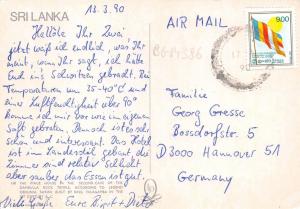 SRI LANKA
13.3.90
AIR MAIL
9.00
Hallöle Ihr Zwei
jetzt weiß ich endlich, was Ihr
meint, wenn Ihr sagt, ich hätte
Euch ins Schwitzen gebracht. Bei
Temperaturen um 35-40°C und
einer Luftfeuchtigkeit über 90%
komme ich mir vor wie im eigenen
Saft gebraten. Dennoch ist es schön
und interessant. Das Hotel
ist im Landesstil gebaut, die
Zimmer sind relativ schlicht
aber sauber, das Essen ist gut.
Viele Grüße Eure
Familie
Georg Gresse
Bossdorfstr. 5
D3000 Hannover 51
Germany